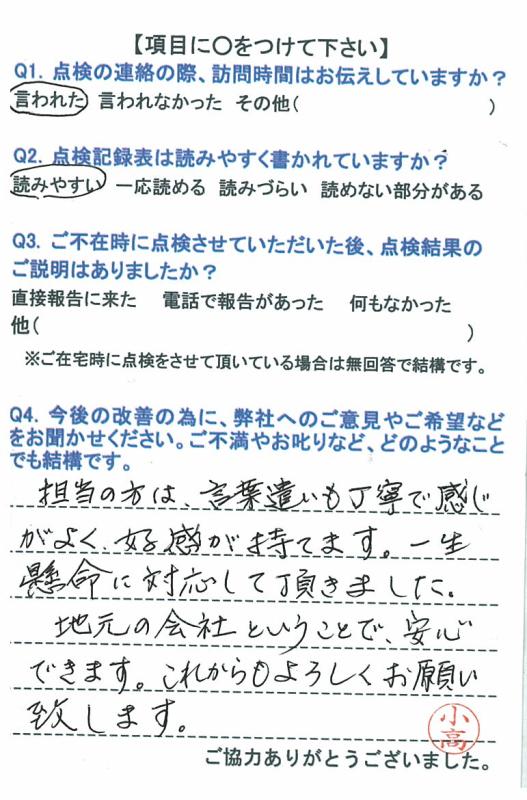 【項目に〇をつけて下さい】
Q1. 点検の連絡の際、訪問時間はお伝えしていますか？
言われた 言われなかった その他( )
Q2. 点検記録表は読みやすく書かれていますか？
読みやすい 一応読める 読みづらい 読めない部分がある
Q3. ご不在時に点検させていただいた後、点検結果の
ご説明はありましたか？
直接報告に来た 電話で報告があった 何もなかった
他( )
※ご在宅時に点検をさせて頂いている場合は無回答で結構です。
Q4. 今後の改善の為に、弊社へのご意見やご希望など
をお聞かせください。ご不満やお叱りなど、どのようなこと
でも結構です。
担当の方は、言葉遣いも丁寧で感じ
がよく、好感が持てます。一生
懸命に対応して頂きました。
地元の会社ということで、安心
できます。これからもよろしくお願い
致します。
小高
ご協力ありがとうございました。